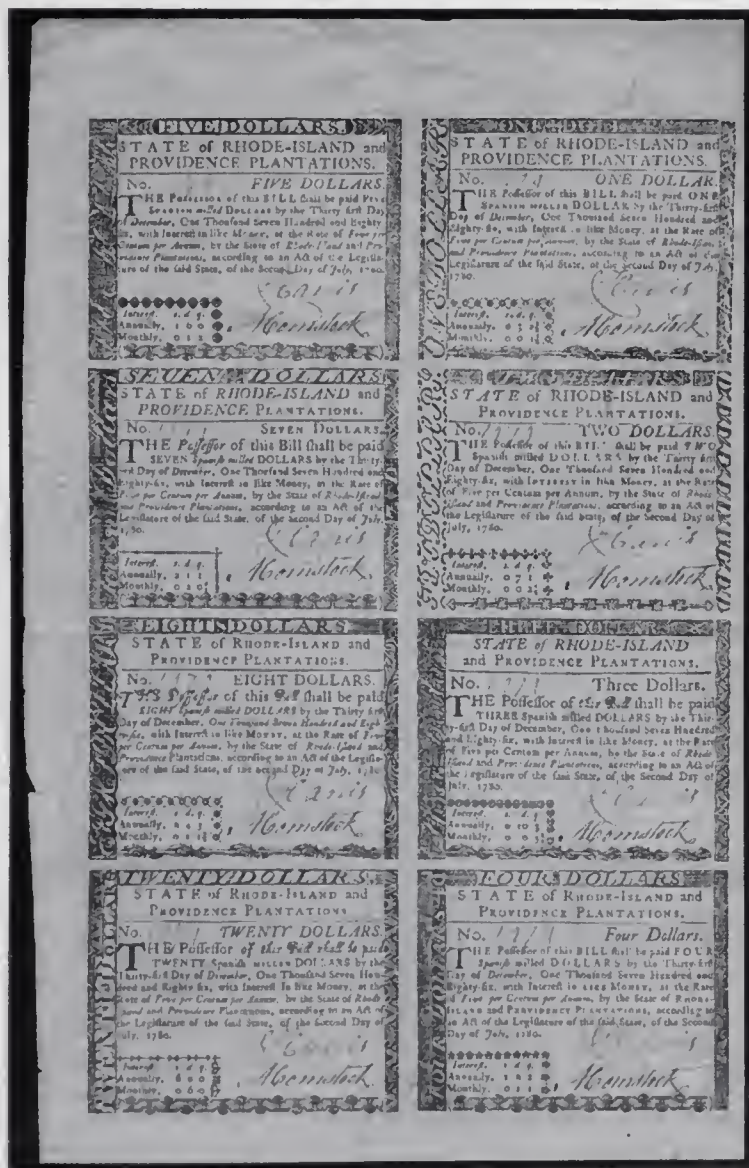 FIVE DOLLARS.
STATE of RHODE-ISLAND and
PROVIDENCE PLANTATIONS.
No. FIVE DOLLARS.
THE Possessor of this BILL shall be paid FIVE
SPANISH milled DOLLARS by the Thirty first Day
of December, One Thousand Seven Hundred and Eighty-
six, with Interest in like Money, at the Rate of Five per
Centum per Annum, by the State of Rhode-Island and Pro-
vidence Plantations, according to an Act of the Legisla-
ture of the said State, of the Second Day of July, 1780.
Interest. s. d. q.
Annually, 1 6 0
Monthly, 0 1 2
Comstock
SEVEN DOLLARS
STATE of RHODE-ISLAND and
PROVIDENCE PLANTATIONS.
No. SEVEN DOLLARS.
THE Possessor of this Bill shall be paid
SEVEN Spanish milled DOLLARS by the Thirty-
first Day of December, One Thousand Seven Hundred and
Eighty-six, with Interest in like Money, at the Rate of
Five per Centum per Annum, by the State of Rhode-Island
and Providence Plantations, according to an Act of the
Legislature of the said State, of the Second Day of July,
1780.
Interest. s. d. q.
Annually, 2 1 1
Monthly, 0 2
Comstock
EIGHT DOLLARS
STATE of RHODE-ISLAND and
PROVIDENCE PLANTATIONS.
No. EIGHT DOLLARS.
THE Possessor of this Bill shall be paid
EIGHT Spanish milled DOLLARS by the Thirty first
Day of December, One Thousand Seven Hundred and Eigh-
ty-six, with Interest in like Money, at the Rate of Five
per Centum per Annum, by the State of Rhode-Island and
Providence Plantations, according to an Act of the Legisla-
ture of the said State, of the Second Day of July, 1780
Interest. s. d. q.
Annually,
Monthly,
Comstock
TWENTY DOLLARS.
STATE of RHODE-ISLAND and
PROVIDENCE PLANTATIONS
No. TWENTY DOLLARS.
THE Possessor of this Bill shall be paid
TWENTY Spanish MILLED DOLLARS by the
Thirty-first Day of December, One Thousand Seven Hun-
dred and Eighty six, with Interest in like Money, at the
Rate of Five per Centum per Annum, by the State of Rhode
Island and Providence Plantations, according to an Act of
the Legislature of the said State, of the Second Day of
July, 1780.
Interest. s. d. q.
Annually, 6 0 0
Monthly, 0 6 0
Comstock
ONE DOLLAR
STATE of RHODE-ISLAND and
PROVIDENCE PLANTATIONS.
No. ONE DOLLAR.
THE Possessor of this BILL shall be paid ONE
SPANISH MILLED DOLLAR by the Thirty-first
Day of December, One Thousand Seven Hundred and
Eighty-six, with Interest in like Money, at the Rate of
Five per Centum per Annum, by the State of Rhode-Island
and Providence Plantations, according to an Act of the
Legislature of the said State, of the Second Day of July,
1780.
Interest. s. d. q.
Annually, 0 3
Monthly, 0 0
Comstock
STATE of RHODE-ISLAND and
PROVIDENCE PLANTATIONS.
No. TWO DOLLARS.
THE Possessor of this BILL shall be paid TWO
Spanish milled DOLLARS by the Thirty first
Day of December, One Thousand Seven Hundred and
Eighty-six, with INTEREST in like Money, at the Rate
of Five per Centum per Annum, by the State of Rhode
Island and Providence Plantations, according to an Act of
the Legislature of the said State, of the Second Day of
July, 1780.
Interest. s. d. q.
Annually, 0 7 1
Monthly, 0 0
Comstock
THREE DOLLARS
STATE of RHODE-ISLAND
and PROVIDENCE PLANTATIONS.
No. Three Dollars.
THE Possessor of this Bill shall be paid
THREE Spanish milled DOLLARS by the Thir-
ty-first Day of December, One thousand Seven Hundred
and Eighty-six, with Interest in like Money, at the Rate
of Five per Centum per Annum, by the State of Rhode
Island and Providence Plantations, according to an Act of
the Legislature of the said State, of the Second Day of
July, 1780.
Interest. s. d. q.
Annually, 0 10 3
Monthly, 0 0
Comstock
FOUR DOLLARS
STATE of RHODE-ISLAND and
PROVIDENCE PLANTATIONS.
No. Four Dollars.
THE Possessor of this BILL shall be paid FOUR
Spanish milled DOLLARS by the Thirty-first
Day of December, One Thousand Seven Hundred and
Eighty-six, with Interest in LIKE MONEY, at the Rate
of Five per Centum per Annum, by the State of RHODE-
ISLAND and PROVIDENCE PLANTATIONS, according to
an Act of the Legislature of the said State, of the Second
Day of July, 1780.
Interest. s. d. q.
Annually, 1 2 2
Monthly, 0 1 1
Comstock